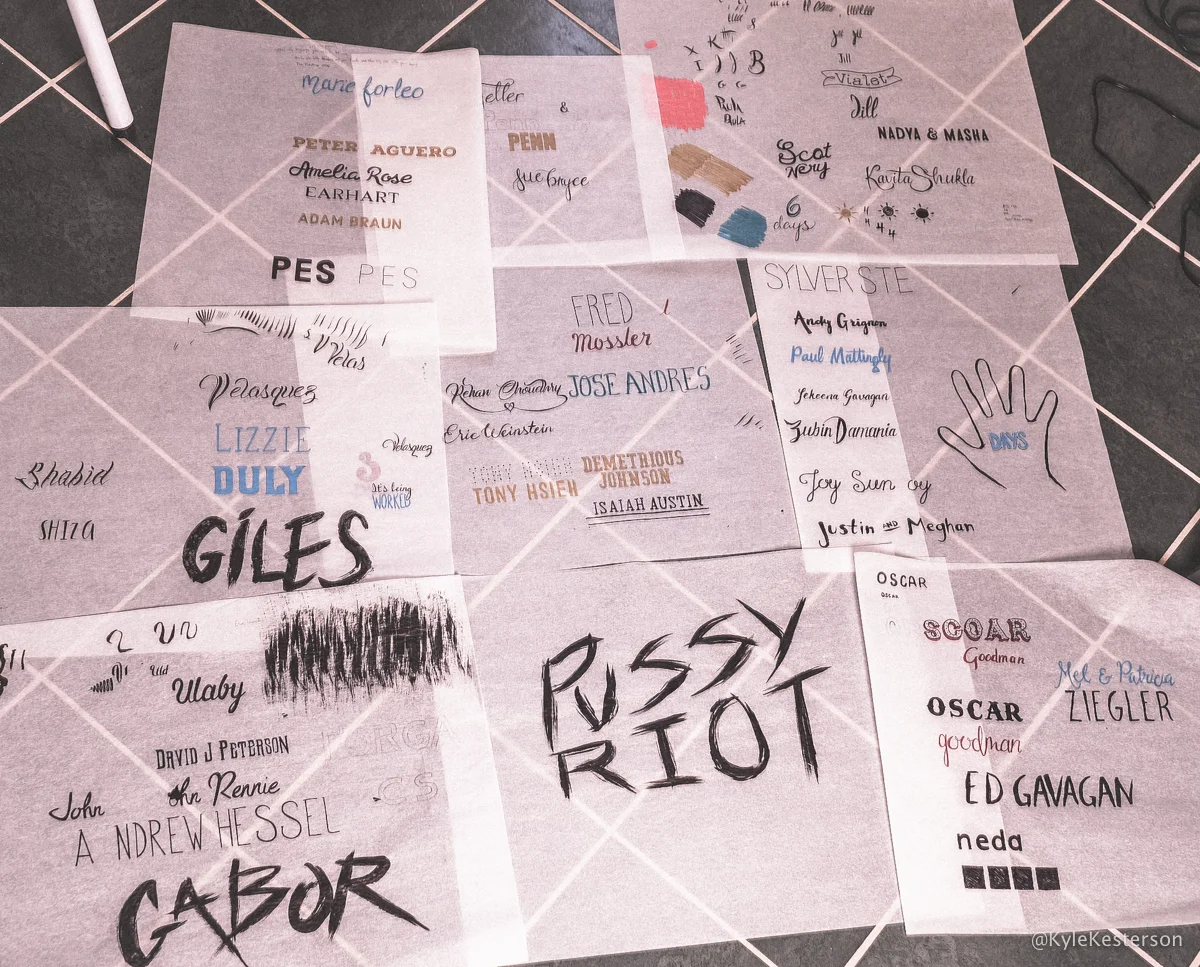 marie forleo
PETER AGUERO
Amelia Rose
EARHART
ADAM BRAUN
PES PES
&
PENN
Sue Bryce
B
Vialet
Jill
Jill
NADYA & MASHA
Scot
Nery
Kavita Shukla
6
days
Velas
Velasquez
LIZZIE
DULY
Velasquez
3
It's being
WORKED
Shahid
SHIZA
GiLES
FRED
Mossler
Rehan Choudhry
JOSE ANDRES
Eric Weinstein
TONY HSIEH
TONY HSIEH
DEMETRIOUS
JOHNSON
ISAIAH AUSTIN
SYLVER STE
Andy Grignon
Paul Mattingly
Jekeena Gavagan
Zubin Damania
DAYS
Joy Sun oy
Justin AND Meghan
Ulaby
DAVID J PETERSON
John
ohn Rennie
A NDREW HESSEL
GABOR
PUSSY
RIOT
OSCAR
OSCAR
SCOAR
Goodman
Mel & Patricia
ZIEGLER
OSCAR
goodman
ED GAVAGAN
neda
@KyleKesterson